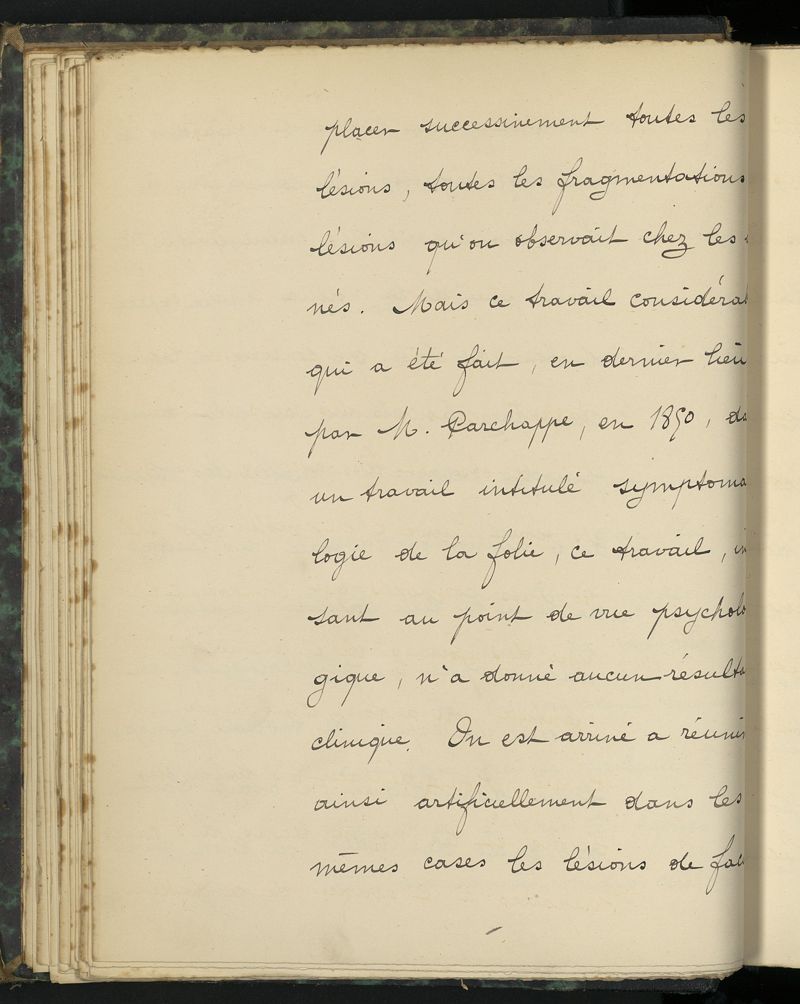 placer successivement toutes les
lésions, toutes les fragmentations
lésions qu'on observait chez les
nés. Mais ce travail considérab
qui a été fait, en dernier lieu
par M. Parchappe, en 1850, da
un travail intitulé symptoma
logie de la folie, ce travail, in
sant au point de vue psycholo
gique, n'a donné aucun résulta
clinique. On est arrivé a réunir
ainsi artificiellement dans les
mêmes cases les lésions de fac